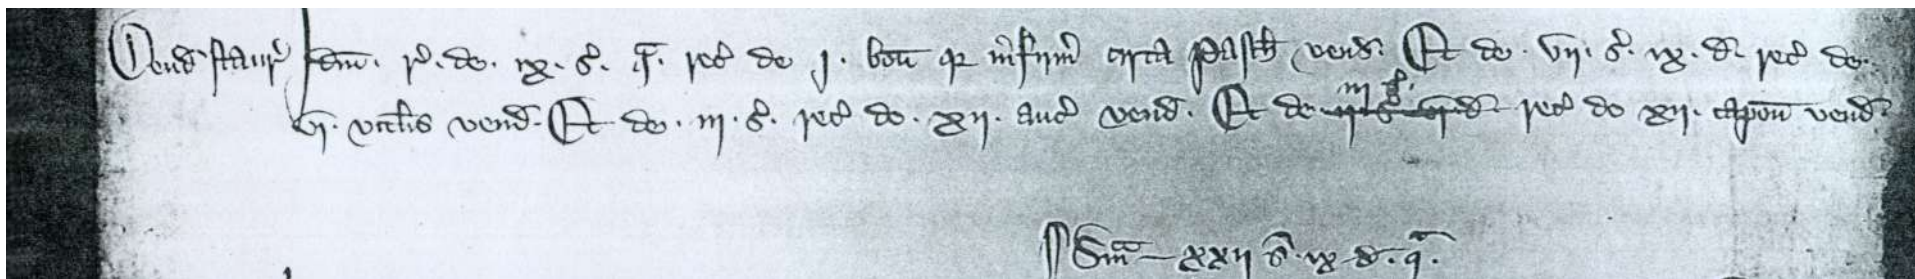 Vend' staur' Idm. r'. de. ix. s'. q'. rec' de j. bou' q' infirm' circa Pasch' vend'. Et de. vij. s'. ix. d'. rec' de.
vj. vitlis vend'. Et de. iij. s'. rec' de. xij. auc' vend'. Et de iij s'. rec' de xij. capon' vend'
Sma xxij s'. ix d'. q'.